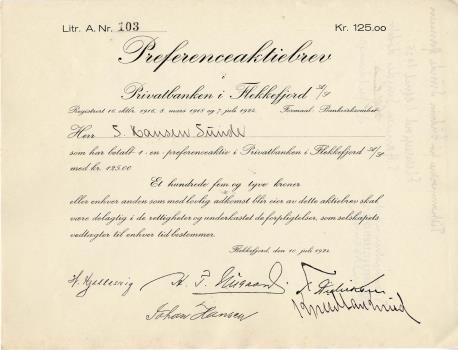 Litr. A. Nr. 103 Kr. 125.00
Preferenceaktiebrev
i
Privatbanken i Flekkefjord A/S
Registrert 16. oktbr. 1916, 8. mars 1918 og 7. juli 1922. Formaal: Bankvirksomhet
Herr S. Hansen Sunde
som har betalt 1 - en - preferenceaktie i Privatbanken i Flekkefjord A/S
med kr. 125.00
Et hundrede fem og tyve kroner
eller enhver anden som med lovlig adkomst blir eier av dette aktiebrev skal
være delagtig i de rettigheter og underkastet de forpligtelser, som selskapets
vedtægter til enhver tid bestemmer.
Flekkefjord, den 10. juli 1922.
H. Hjellesvig
Johan Hansen